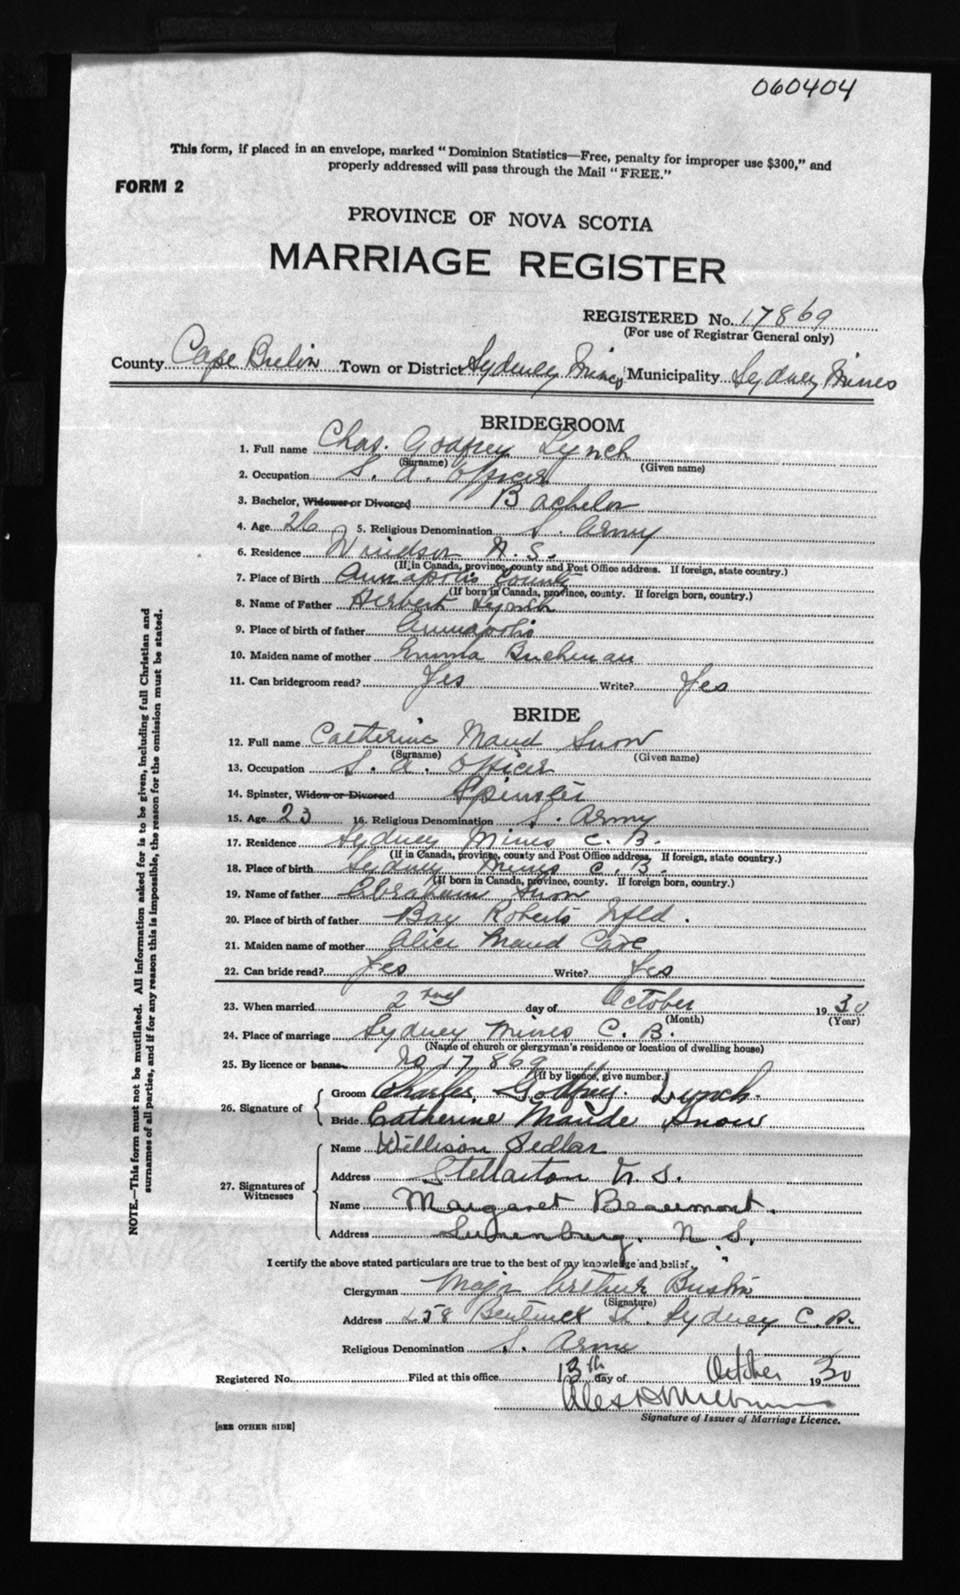 060404
This form, if placed in an envelope, marked "Dominion Statistics—Free, penalty for improper use $300," and
properly addressed will pass through the Mail "FREE."
FORM 2
PROVINCE OF NOVA SCOTIA
MARRIAGE REGISTER
REGISTERED No. 17869
(For use of Registrar General only)
County Cape Breton Town or District Sydney Mines Municipality Sydney Mines
BRIDEGROOM
1. Full name Chas. Godfrey Lynch
(Surname) (Given name)
2. Occupation S. A. Officer
3. Bachelor, Widower or Divorced Bachelor
4. Age 26 5. Religious Denomination S. Army
6. Residence Windsor N. S.
(If in Canada, province, county and Post Office address. If foreign, state country.)
7. Place of Birth Annapolis County
(If born in Canada, province, county. If foreign born, country.)
8. Name of Father Herbert Lynch
9. Place of birth of father Annapolis
10. Maiden name of mother Emma Buchman
11. Can bridegroom read? Yes Write? Yes
BRIDE
12. Full name Catherine Maud Snow
(Surname) (Given name)
13. Occupation S. A. Officer
14. Spinster, Widow or Divorced Spinster
15. Age 23 16. Religious Denomination S. Army
17. Residence Sydney Mines C. B.
(If in Canada, province, county and Post Office address. If foreign, state country.)
18. Place of birth Sydney Mines C. B.
(If born in Canada, province, county. If foreign born, country.)
19. Name of father Abraham Snow
20. Place of birth of father Bay Roberts Nfld.
21. Maiden name of mother Alice Maud Cave
22. Can bride read? Yes Write? Yes
23. When married 2nd day of October 1930
(Month) (Year)
24. Place of marriage Sydney Mines C. B.
(Name of church or clergyman's residence or location of dwelling house)
25. By licence or banns No 17869
(If by licence, give number.)
26. Signature of { Groom Charles Godfrey Lynch.
Bride Catherine Maude Snow
27. Signatures of Witnesses { Name Willison Sedlar
Address Stellarton N. S.
Name Margaret Beaumont.
Address Lunenburg. N. S.
I certify the above stated particulars are true to the best of my knowledge and belief.
Clergyman Major Arthur
(Signature)
Address 258 Bentinck St. Sydney C. B.
Religious Denomination S. Army
Registered No. Filed at this office 13th day of October 1930
Signature of Issuer of Marriage Licence.
[SEE OTHER SIDE]
NOTE.—This form must not be mutilated. All information asked for is to be given, including full Christian and
surnames of all parties, and if for any reason this is impossible, the reason for the omission must be stated.